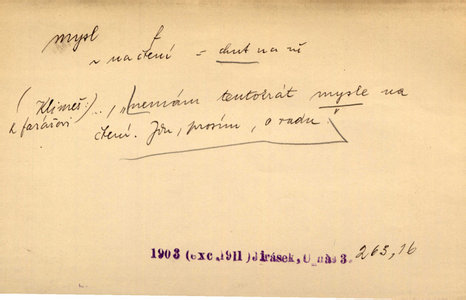 mysl f
~ na čtení = chuť na ně
(Klimeš: ) .., „nemám tentokrát mysle na
k farářovi čtení. Jdu, prosím, o radu.
1903 (exc.1911) Jirásek, U nás 3. 263,16